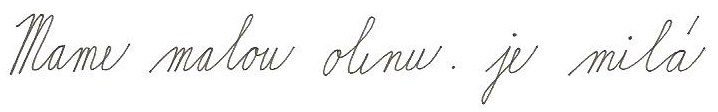 Mame malou olinu. je milá